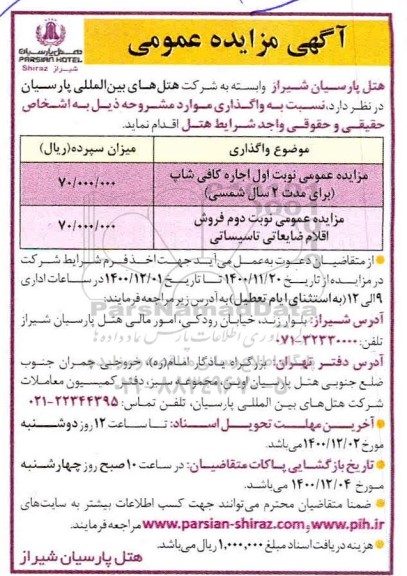 آگهی مزایده عمومی
هتل پارسیان شیراز
PARSIAN HOTEL
Shiraz شیراز
هتل پارسیان شیراز وابسته به شرکت هتل‌های بین‌المللی پارسیان
در نظر دارد، نسبت به واگذاری موارد مشروحه ذیل به اشخاص
حقیقی و حقوقی واجد شرایط هتل اقدام نماید.
موضوع واگذاری میزان سپرده(ریال)
مزایده عمومی نوبت اول اجاره کافی شاپ
(برای مدت ۲ سال شمسی) ۷۰/۰۰۰/۰۰۰
مزایده عمومی نوبت دوم فروش
اقلام ضایعاتی تاسیساتی ۷۰/۰۰۰/۰۰۰
از متقاضیان دعوت به عمل می‌آید جهت اخذ فرم شرایط شرکت
در مزایده از تاریخ ۱۴۰۰/۱۱/۲۰ تا تاریخ ۱۴۰۰/۱۲/۰۱ در ساعات اداری
۹ الی ۱۲ (به استثنای ایام تعطیل) به آدرس زیر مراجعه فرمایند:
آدرس شیراز: بلوار زند، خیابان رودکی، امور مالی هتل پارسیان شیراز
تلفن: ۳۲۳۳۰۰۰۰-۰۷۱
آدرس دفتر تهران: بزرگراه یادگار امام(ره)، خروجی چمران جنوب
ضلع جنوبی هتل پارسیان اوین، مجموعه سبز، دفتر کمیسیون معاملات
شرکت هتل‌های بین المللی پارسیان، تلفن تماس: ۲۲۳۴۴۳۹۵-۰۲۱
آخرین مهلت تحویل اسناد: تا ساعت ۱۲ روز دوشنبه
مورخ ۱۴۰۰/۱۲/۰۲ می‌باشد.
تاریخ بازگشایی پاکات متقاضیان: در ساعت ۱۰ صبح روز چهارشنبه
مورخ ۱۴۰۰/۱۲/۰۴ می‌باشد.
ضمنا متقاضیان محترم می‌توانند جهت کسب اطلاعات بیشتر به سایت‌های
www.pih.ir و www.parsian-shiraz.com مراجعه فرمایند.
هزینه دریافت اسناد مبلغ ۱,۰۰۰,۰۰۰ ریال می‌باشد.
هتل پارسیان شیراز
ParsNamadData